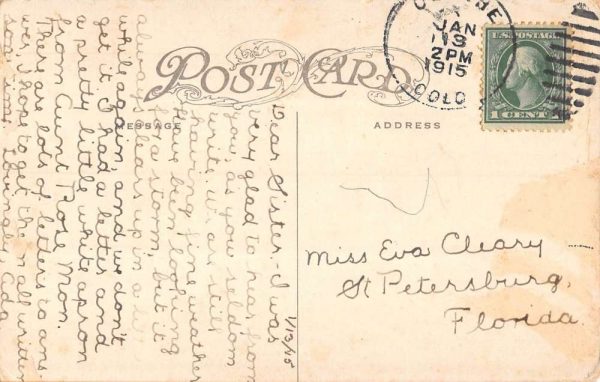 POST CARD
MESSAGE
ADDRESS
JAN
13
2PM
1915
COLO
U.S. POSTAGE
1 CENT 1
Miss Eva Cleary
St Petersburg,
Florida.
1/13/15
Dear Sister:- I was
very glad to hear from
you, as you seldom
write. We are still
having fine weather
Have been looking
for a storm, but it
always clears up in a
while again, and we don't
get it. I had a letter and
a pretty little white apron
from Aunt Rose Mon.
There are lots of letters to ans-
wer. I hope to get them all written
soon. Lovingly, Ada